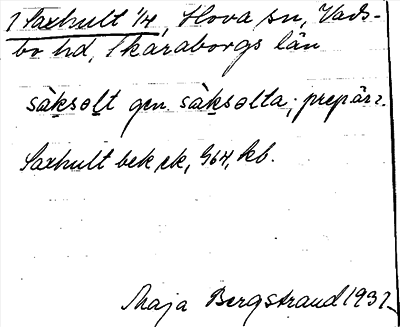 1 Saxhult 1/4, Hova sn, Vads-
bo hd, Skaraborgs län
sàksəlt gen. sàksəlta; prep är 2.
Saxhult bek ek, 964, kb.
Maja Bergstrand 1931